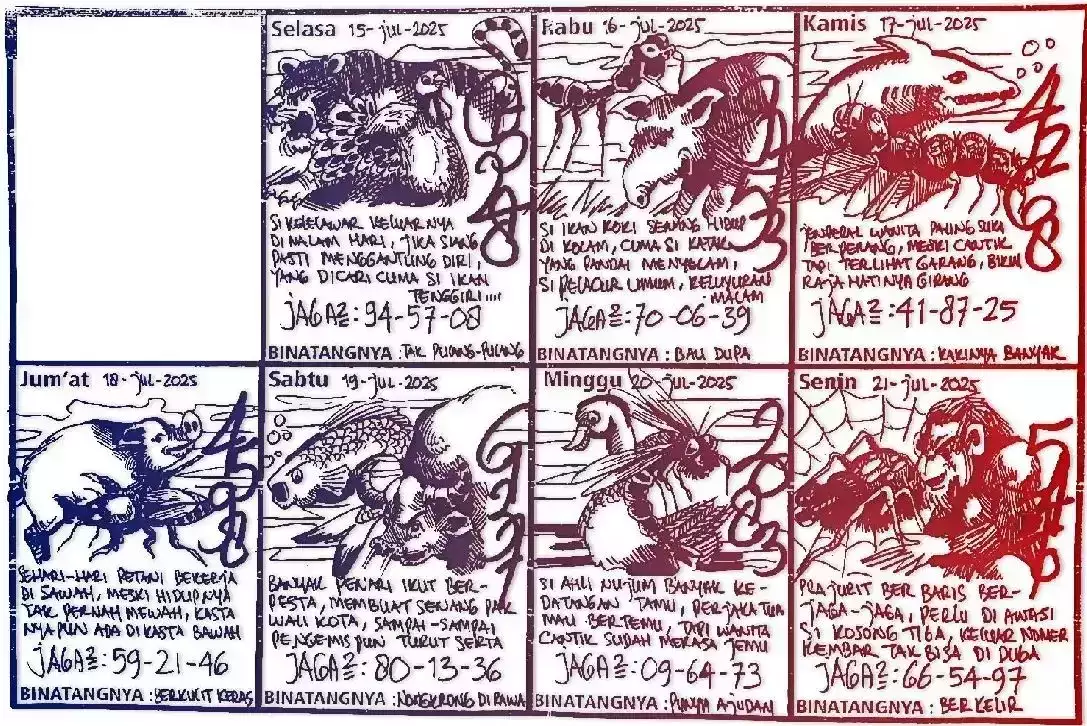 Selasa 15-jul-2025
SI KELELAWAR KELUARNYA
DI MALAM HARI, JIKA SIANG
PASTI MENGGANTUNG DIRI,
YANG DICARI CUMA SI IKAN
TENGGIRI....
JAGA2 : 94-57-08
BINATANGNYA : TAK PULANG-PULANG
Rabu 16-jul-2025
SI IKAN KOKI SENANG HIDUP
DI KOLAM, CUMA SI KATAK
YANG PANDAI MENYELAM,
SI PELACUR UMUM, KELUYURAN
MALAM
JAGA2 : 70-06-39
BINATANGNYA : BAU DUPA
Kamis 17-jul-2025
JENDERAL WANITA PALING SUKA
BERPERANG, MESKI CANTIK
TAPI TERLIHAT GARANG, BIKIN
RAJA HATINYA GIRANG
JAGA2 : 41-87-25
BINATANGNYA : KAKINYA BANYAK
Jum'at 18-jul-2025
SEHARI-HARI PETANI BEKERJA
DI SAWAH, MESKI HIDUPNYA
TAK PERNAH MEWAH, KASTA
NYA PUN ADA DI KASTA BAWAH
JAGA2 : 59-21-46
BINATANGNYA : BERKULIT KERAS
Sabtu 19-jul-2025
BANYAK PENARI IKUT BER-
PESTA, MEMBUAT SENANG PAK
WALI KOTA, SAMPAI-SAMPAI
PENGEMIS PUN TURUT SERTA
JAGA2 : 80-13-36
BINATANGNYA : NONGKRONG DI RAWA
Minggu 20-jul-2025
SI AHLI NUJUM BANYAK KE-
DATANGAN TAMU, PERJAKA TUA
MAU BERTEMU, TAPI WANITA
CANTIK SUDAH MERASA JEMU
JAGA2 : 09-64-73
BINATANGNYA : PUNYA AJUDAN
Senin 21-jul-2025
PRAJURIT BER BARIS BER-
JAGA-JAGA, PERLU DI AWASI
SI KOSONG TIGA, KELUAR NOMER
KEMBAR TAK BISA DI DUGA
JAGA2 : 66-54-97
BINATANGNYA : BERKELIR